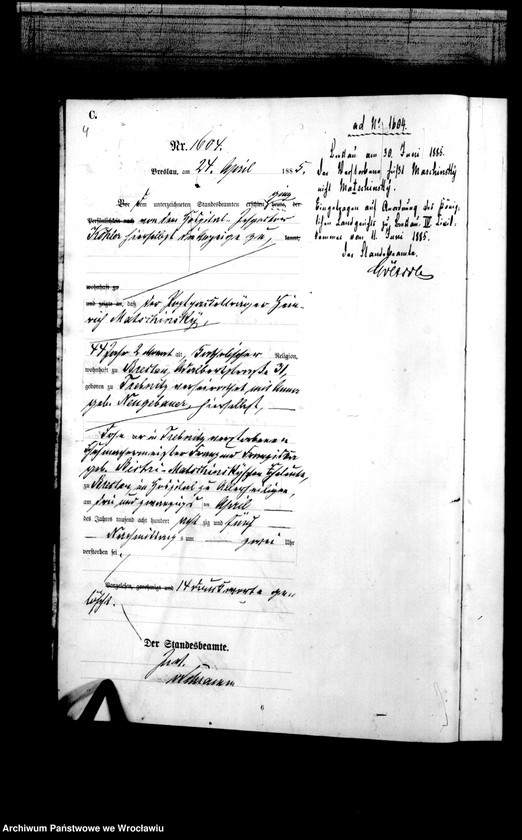 C.
4
Nr. 1604.
Breslau, am 24. April 1885.
Vor dem unterzeichneten Standesbeamten erschien heute, der
ging
Persönlichkeit nach von dem Hospital-Inspektor
Köhler hierselbst die Anzeige ein, kannt,
wohnhaft zu
und zeigte an, daß der Postpacketträger Hein-
rich Matschinsky,
44 Jahr 2 Monat alt, katholischer Religion,
wohnhaft zu Breslau, Adalbertstraße 31,
geboren zu Trebnitz verheirathet mit Anna
geb. Neugebauer, hierselbst,
Sohn der in Trebnitz verstorbenen
Schuhmachermeister Franz und Franziska
geb. Matschinsky'schen Eheleute,
zu Breslau, im Hospital zu Allerheiligen,
am drei und zwanzigsten April
des Jahres tausend acht hundert acht zig und fünf
Nachmittag s um zwei Uhr
verstorben sei.
Vorgelesen, genehmigt und 14 Druckworte ge-
löscht.
Der Standesbeamte.
6
ad No. 1604.
Breslau am 30. Juni 1885.
Der Verstorbene heißt Maschinsky
nicht Matschinsky.
Eingetragen auf Anordnung des König-
lichen Landgerichts zu Breslau IV Civil-
kammer vom 11. Juni 1885.
Der Standesbeamte.
Archiwum Państwowe we Wrocławiu